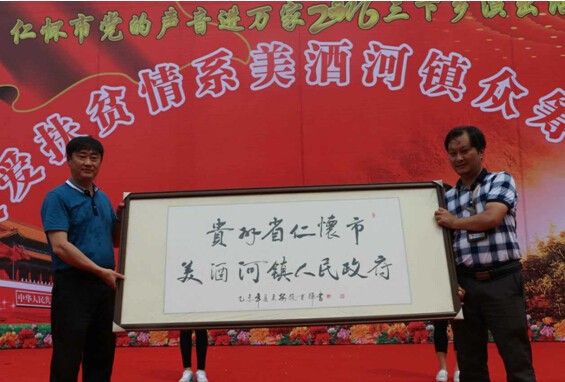 仁怀市党的声音进万家2016三下乡演出活
爱扶贫情系美酒河镇众筹
貴州省仁懷市
美酒河镇人民政府
中华人民共